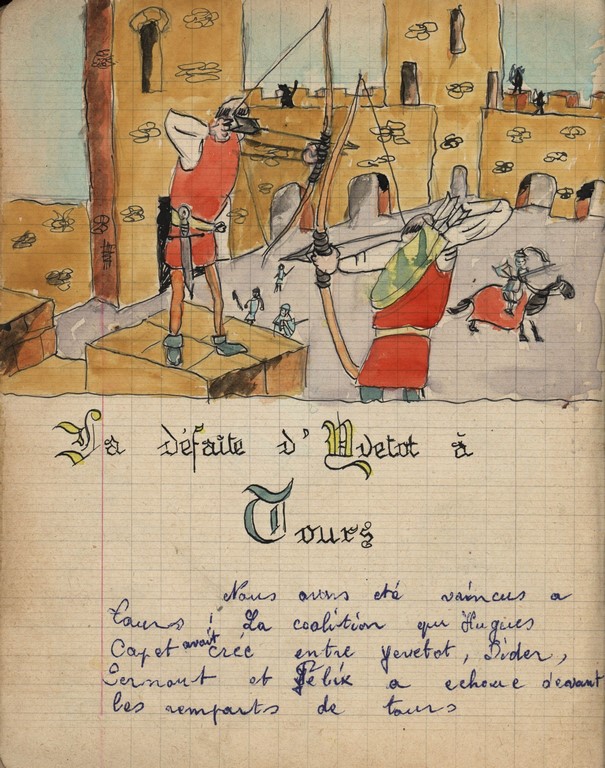 La défaite d'Yvetot à
Tours
Nous avons été vaincus a
tours ; La coalition que Hugues
Capet avait créé entre yevetot, Dider,
Sernout et Félix a echoue devant
les remparts de tours